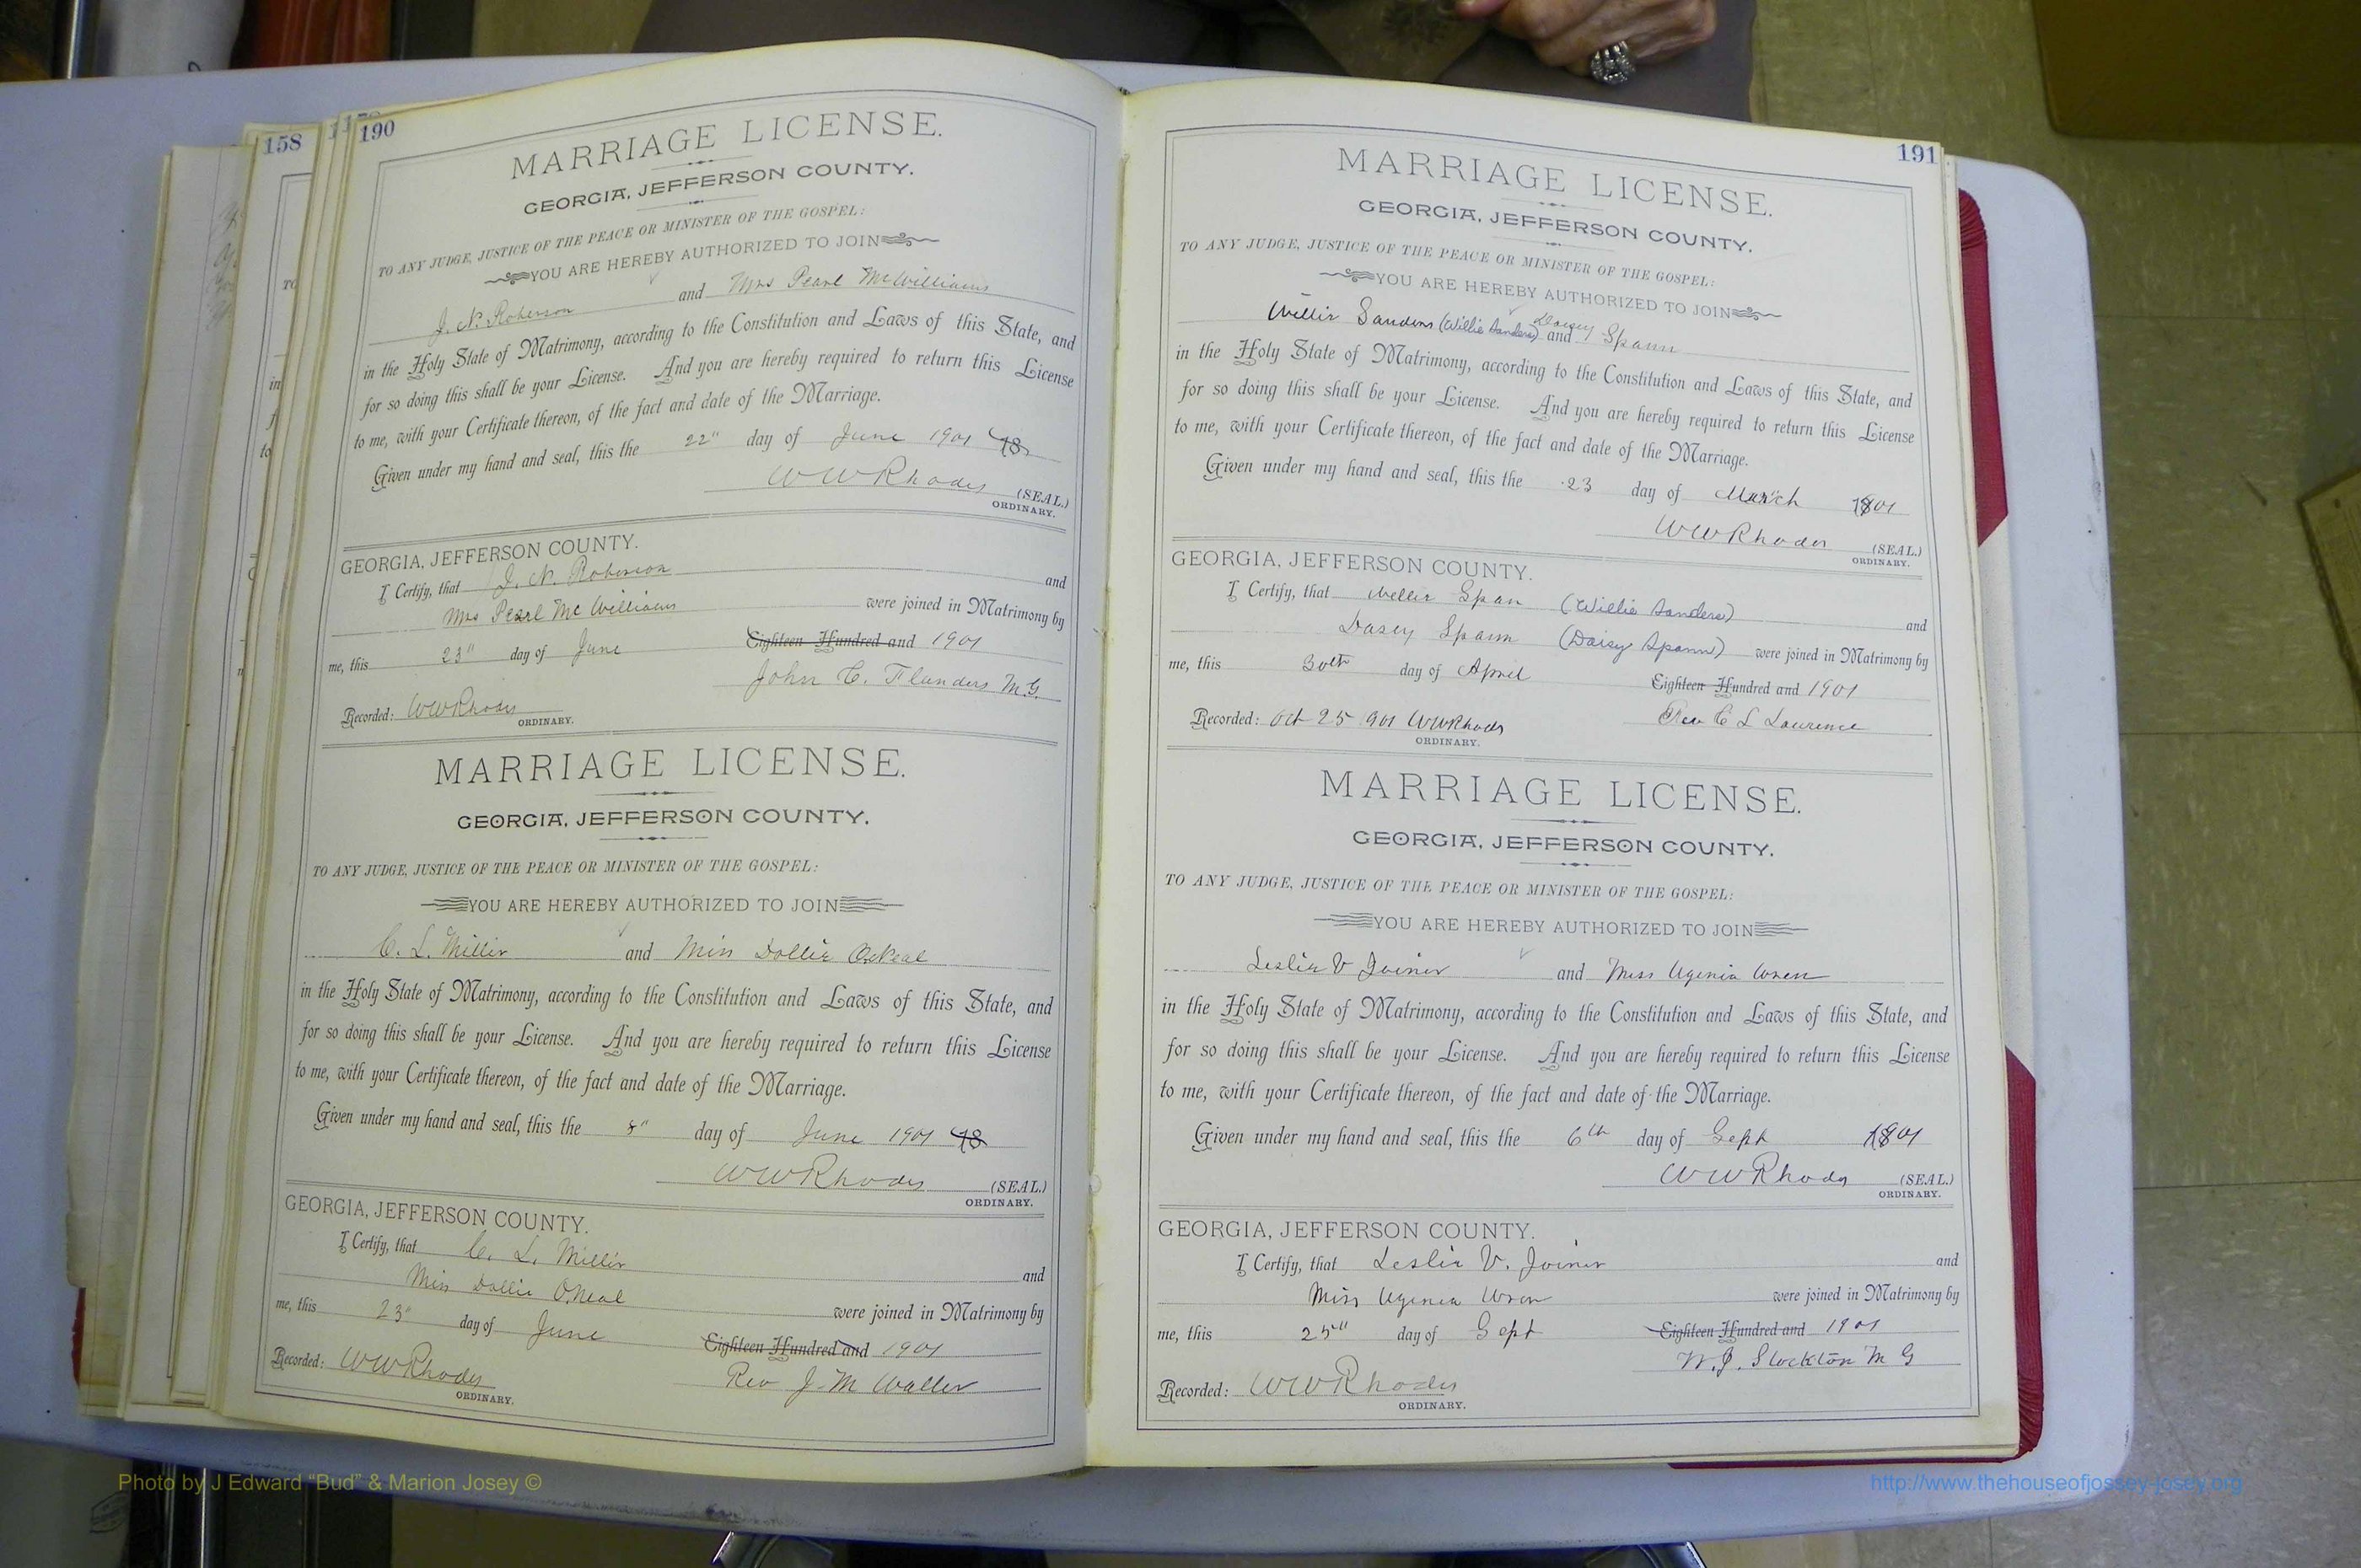 158
190
MARRIAGE LICENSE.
GEORGIA, JEFFERSON COUNTY.
TO ANY JUDGE, JUSTICE OF THE PEACE OR MINISTER OF THE GOSPEL:
YOU ARE HEREBY AUTHORIZED TO JOIN
J. N. Roberson and Mrs Pearl McWilliams
in the Holy State of Matrimony, according to the Constitution and Laws of this State, and
for so doing this shall be your License. And you are hereby required to return this License
to me, with your Certificate thereon, of the fact and date of the Marriage.
Given under my hand and seal, this the 22" day of June 1901 18
WW Rhodes (SEAL.)
ORDINARY.
GEORGIA, JEFFERSON COUNTY.
I Certify, that J. N. Roberson and
Mrs Pearl McWilliams were joined in Matrimony by
me, this 23" day of June Eighteen Hundred and 1901
John C. Flanders M.G.
Recorded: WW Rhodes
ORDINARY.
MARRIAGE LICENSE.
GEORGIA, JEFFERSON COUNTY.
TO ANY JUDGE, JUSTICE OF THE PEACE OR MINISTER OF THE GOSPEL:
YOU ARE HEREBY AUTHORIZED TO JOIN
C. L. Miller and Miss Dollie O'Neal
in the Holy State of Matrimony, according to the Constitution and Laws of this State, and
for so doing this shall be your License. And you are hereby required to return this License
to me, with your Certificate thereon, of the fact and date of the Marriage.
Given under my hand and seal, this the 8" day of June 1901 18
WW Rhodes (SEAL.)
ORDINARY.
GEORGIA, JEFFERSON COUNTY.
I Certify, that C. L. Miller and
Miss Dollie O'Neal were joined in Matrimony by
me, this 23" day of June Eighteen Hundred and 1901
Rev J. M Waller
Recorded: WW Rhodes
ORDINARY.
191
MARRIAGE LICENSE.
GEORGIA, JEFFERSON COUNTY.
TO ANY JUDGE, JUSTICE OF THE PEACE OR MINISTER OF THE GOSPEL:
YOU ARE HEREBY AUTHORIZED TO JOIN
Willie Sanders (Willie Sanders) and Daisey Spann
in the Holy State of Matrimony, according to the Constitution and Laws of this State, and
for so doing this shall be your License. And you are hereby required to return this License
to me, with your Certificate thereon, of the fact and date of the Marriage.
Given under my hand and seal, this the 23 day of March 1901
WW Rhodes (SEAL.)
ORDINARY.
GEORGIA, JEFFERSON COUNTY.
I Certify, that Willie Span (Willie Sanders) and
Dasey Spann (Daisy Spann) were joined in Matrimony by
me, this 30th day of April Eighteen Hundred and 1901
Rev C L Lawrence
Recorded: Oct 25 1901 WW Rhodes
ORDINARY.
MARRIAGE LICENSE.
GEORGIA, JEFFERSON COUNTY.
TO ANY JUDGE, JUSTICE OF THE PEACE OR MINISTER OF THE GOSPEL:
YOU ARE HEREBY AUTHORIZED TO JOIN
Leslie V Joiner and Miss Ugenia Wren
in the Holy State of Matrimony, according to the Constitution and Laws of this State, and
for so doing this shall be your License. And you are hereby required to return this License
to me, with your Certificate thereon, of the fact and date of the Marriage.
Given under my hand and seal, this the 6th day of Sept 1901
WW Rhodes (SEAL.)
ORDINARY.
GEORGIA, JEFFERSON COUNTY.
I Certify, that Leslie V. Joiner and
Miss Ugenia Wren were joined in Matrimony by
me, this 25" day of Sept Eighteen Hundred and 1901
W. J. Stockton M G
Recorded: WW Rhodes
ORDINARY.
Photo by J Edward “Bud” & Marion Josey ©
http://www.thehouseofjossey-josey.org